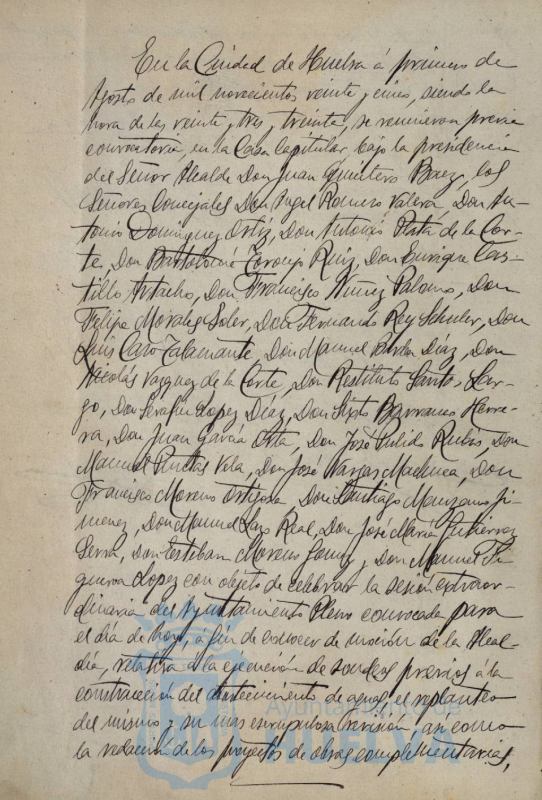 En la Ciudad de Huelva á primero de
Agosto de mil novecientos veinte y cinco, siendo la
hora de las veinte y tres y treinta, se reunieron previa
convocatoria en la Casa Capitular bajo la presidencia
del Señor Alcalde Don Juan Quintero Baez, los
Señores Concejales Don Angel Romero Valera Don An-
tonio Dominguez Ortiz, Don Antonio de la Cor-
te, Don Bartolomé Ruiz, Don Enrique Cas-
tillo Don Francisco Nuñez Palomo, Don
Felipe Morales Soler, Don Fernando Rey Don
Luis Caro Don Manuel Diaz, Don
Nicolás Vazquez de la Corte, Don Restituto Santos Lar-
go, Don Serafin Lopez Diaz, Don Sixto Barranco Herre-
ra, Don Juan García Orta, Don José Pulido Rubio, Don
Manuel Vela, Don José Vargas Machuca, Don
Francisco Moreno Ortega, Don Santiago Manzano Ji-
menez, Don Manuel Real, Don José María Gutierrez
Serra, Don Esteban Moreno y Don Manuel Fi-
gueroa Lopez con objeto de celebrar la sesión extraor-
dinaria del Ayuntamiento Pleno convocada para
el día de hoy, á fin de conocer de moción de la Alcal-
día, relativa á la ejecución de sondeos previos á la
construcción del abastecimiento de aguas, el replanteo
del mismo y su mas escrupulosa revisión, así como
la redacción de los proyectos de obras complementarias,
Ayuntamiento de
HUELVA